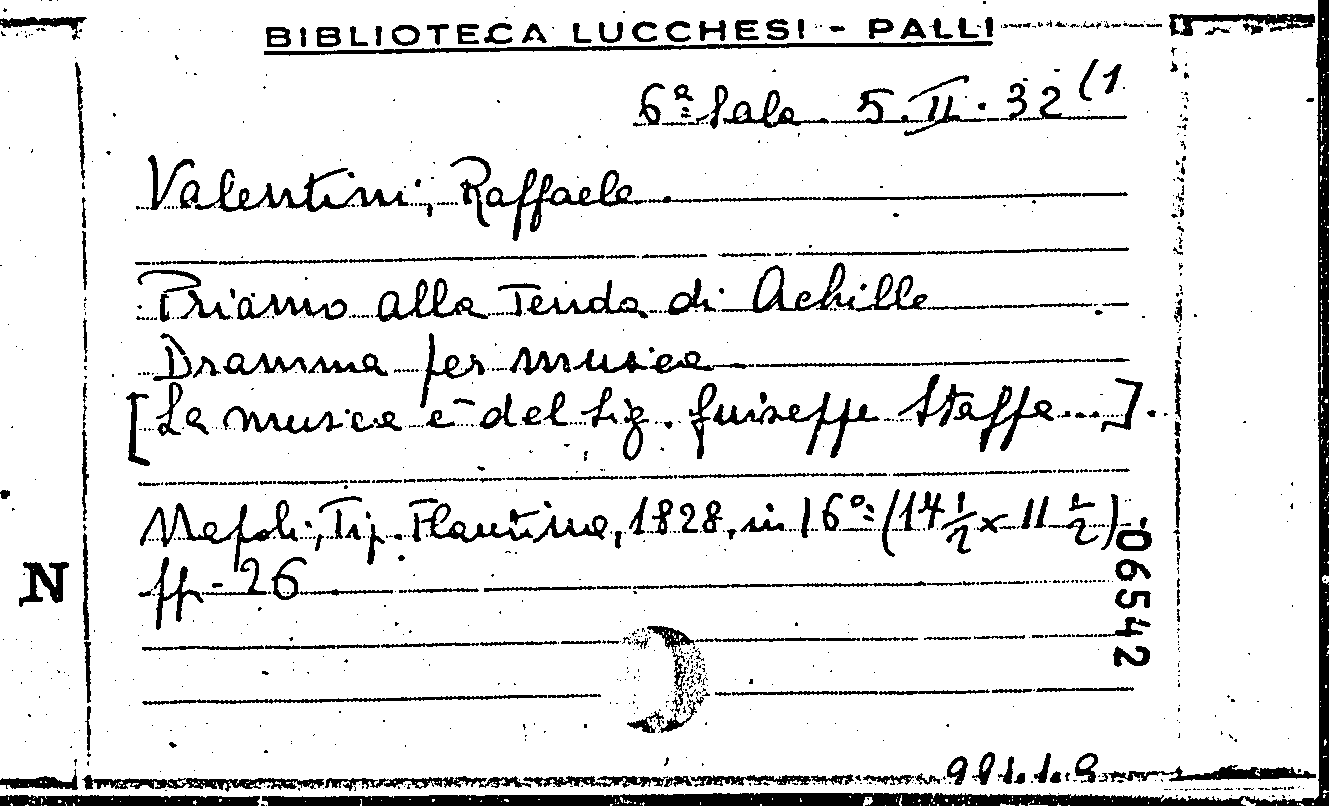 BIBLIOTECA LUCCHESI - PALLI
6ª Sala. 5.II.32 (1
Valentini, Raffaele.
Priamo alla Tenda di Achille
Dramma per musica
[La musica è del Sig. Guiseppe Staffa...].
Napoli, Tip. Flautina, 1828, in 16º: (14 1/2 x 11 1/2)
pp. 26
N
06542